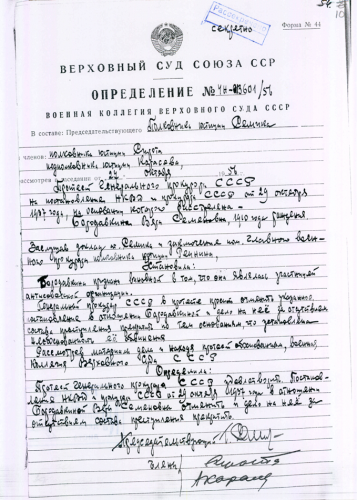 Рассекречено
секретно
Форма № 44
ВЕРХОВНЫЙ СУД СОЮЗА ССР
ОПРЕДЕЛЕНИЕ № 4Н-013601/56
ВОЕННАЯ КОЛЛЕГИЯ ВЕРХОВНОГО СУДА СССР
В составе: Председательствующего Полковника юстиции Семика
членов: полковника юстиции
подполковника юстиции
рассмотрев в заседании от октября 1956
Протест Генерального прокурора СССР
на постановление НКВД и прокурора СССР от 29 октября
1937 года, на основании которого расстреляна
Бородавкина Вера Семеновна, 1910 года рождения
Заслушав доклад т. Семика и заключение пом. главного воен-
ного прокурора юстиции
Установила:
Бородавкина признана виновной в том, что она являлась участницей
антисоветской организации.
Генеральный прокурор СССР в протесте просит отменить указанное
постановление в отношении Бородавкиной и дело на неё за отсутствием
состава преступления прекратить по тем основаниям, что установлена
её обвинения
Рассмотрев материалы дела и находя протест обоснованным, Военная
Коллегия Верховного суда СССР
Определила:
Протест Генерального прокурора СССР удовлетворить. Постанов-
ление НКВД и прокурора СССР от 29 октября 1937 года в отношении
Бородавкиной Веры Семеновны отменить и дело на неё за
отсутствием состава преступления прекратить
Председательствующий
Члены